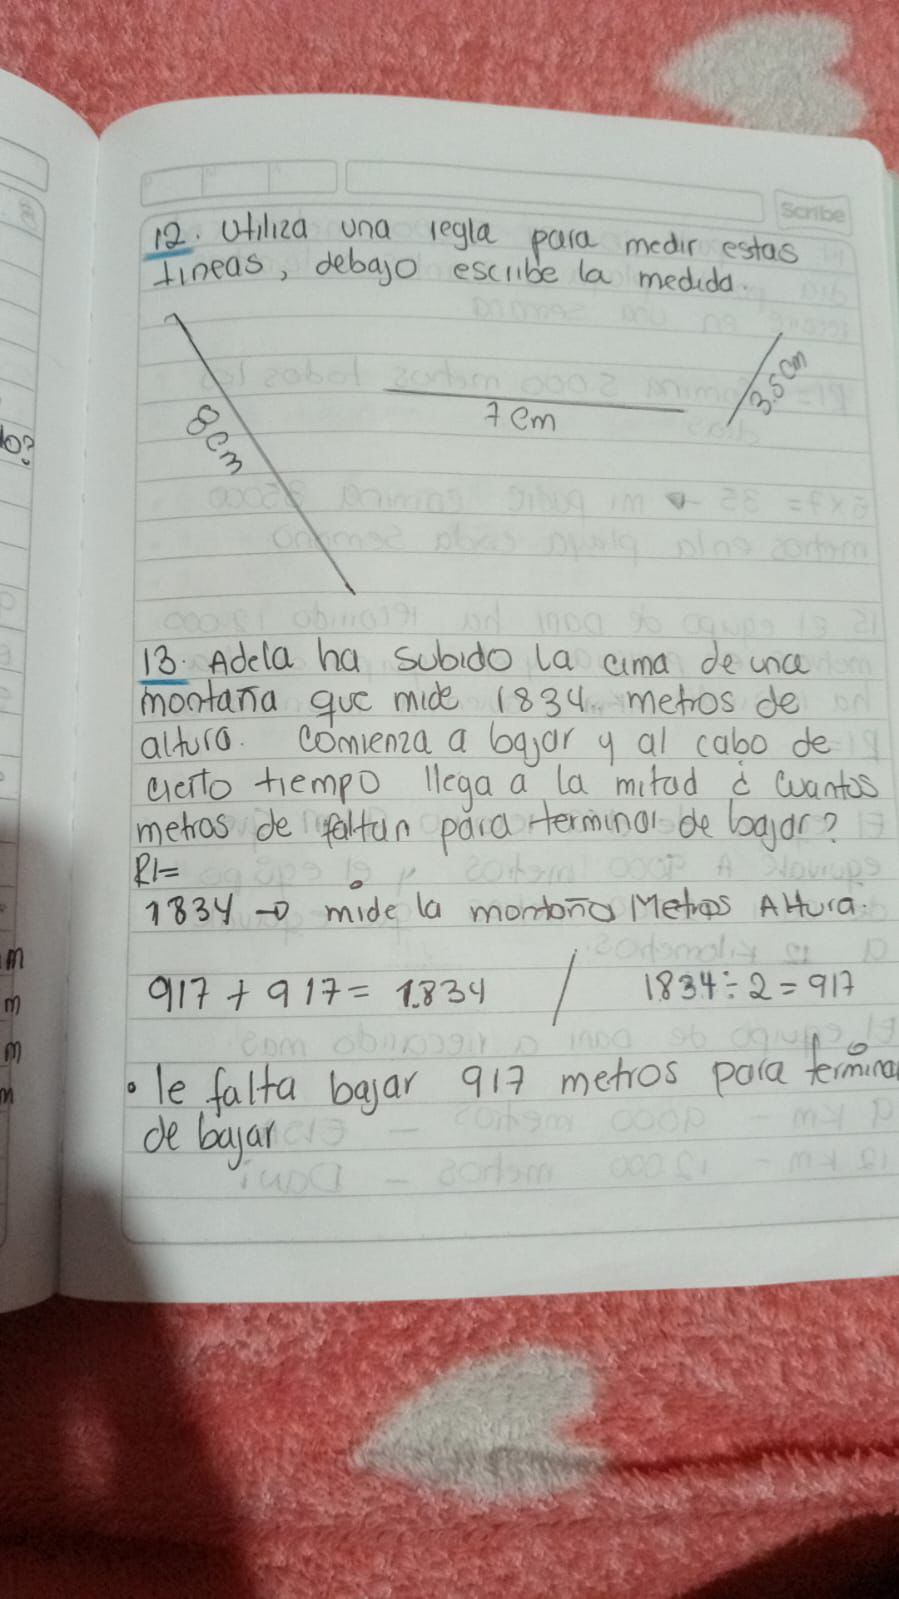 Scribe
12. Utiliza una regla para medir estas
líneas, debajo escribe la medida.
8cm
7cm
3.5cm
lo?
13. Adela ha subido la cima de una
montaña que mide 1834 metros de
altura. Comienza a bajar y al cabo de
cierto tiempo llega a la mitad ¿ Cuantos
metros de faltan para terminar de bajar?
R1=
1834 → mide la montaña Metros Altura.
917 + 917 = 1.834 / 1834 ÷ 2 = 917
• le falta bajar 917 metros para termina
de bajar
m
m
m
m